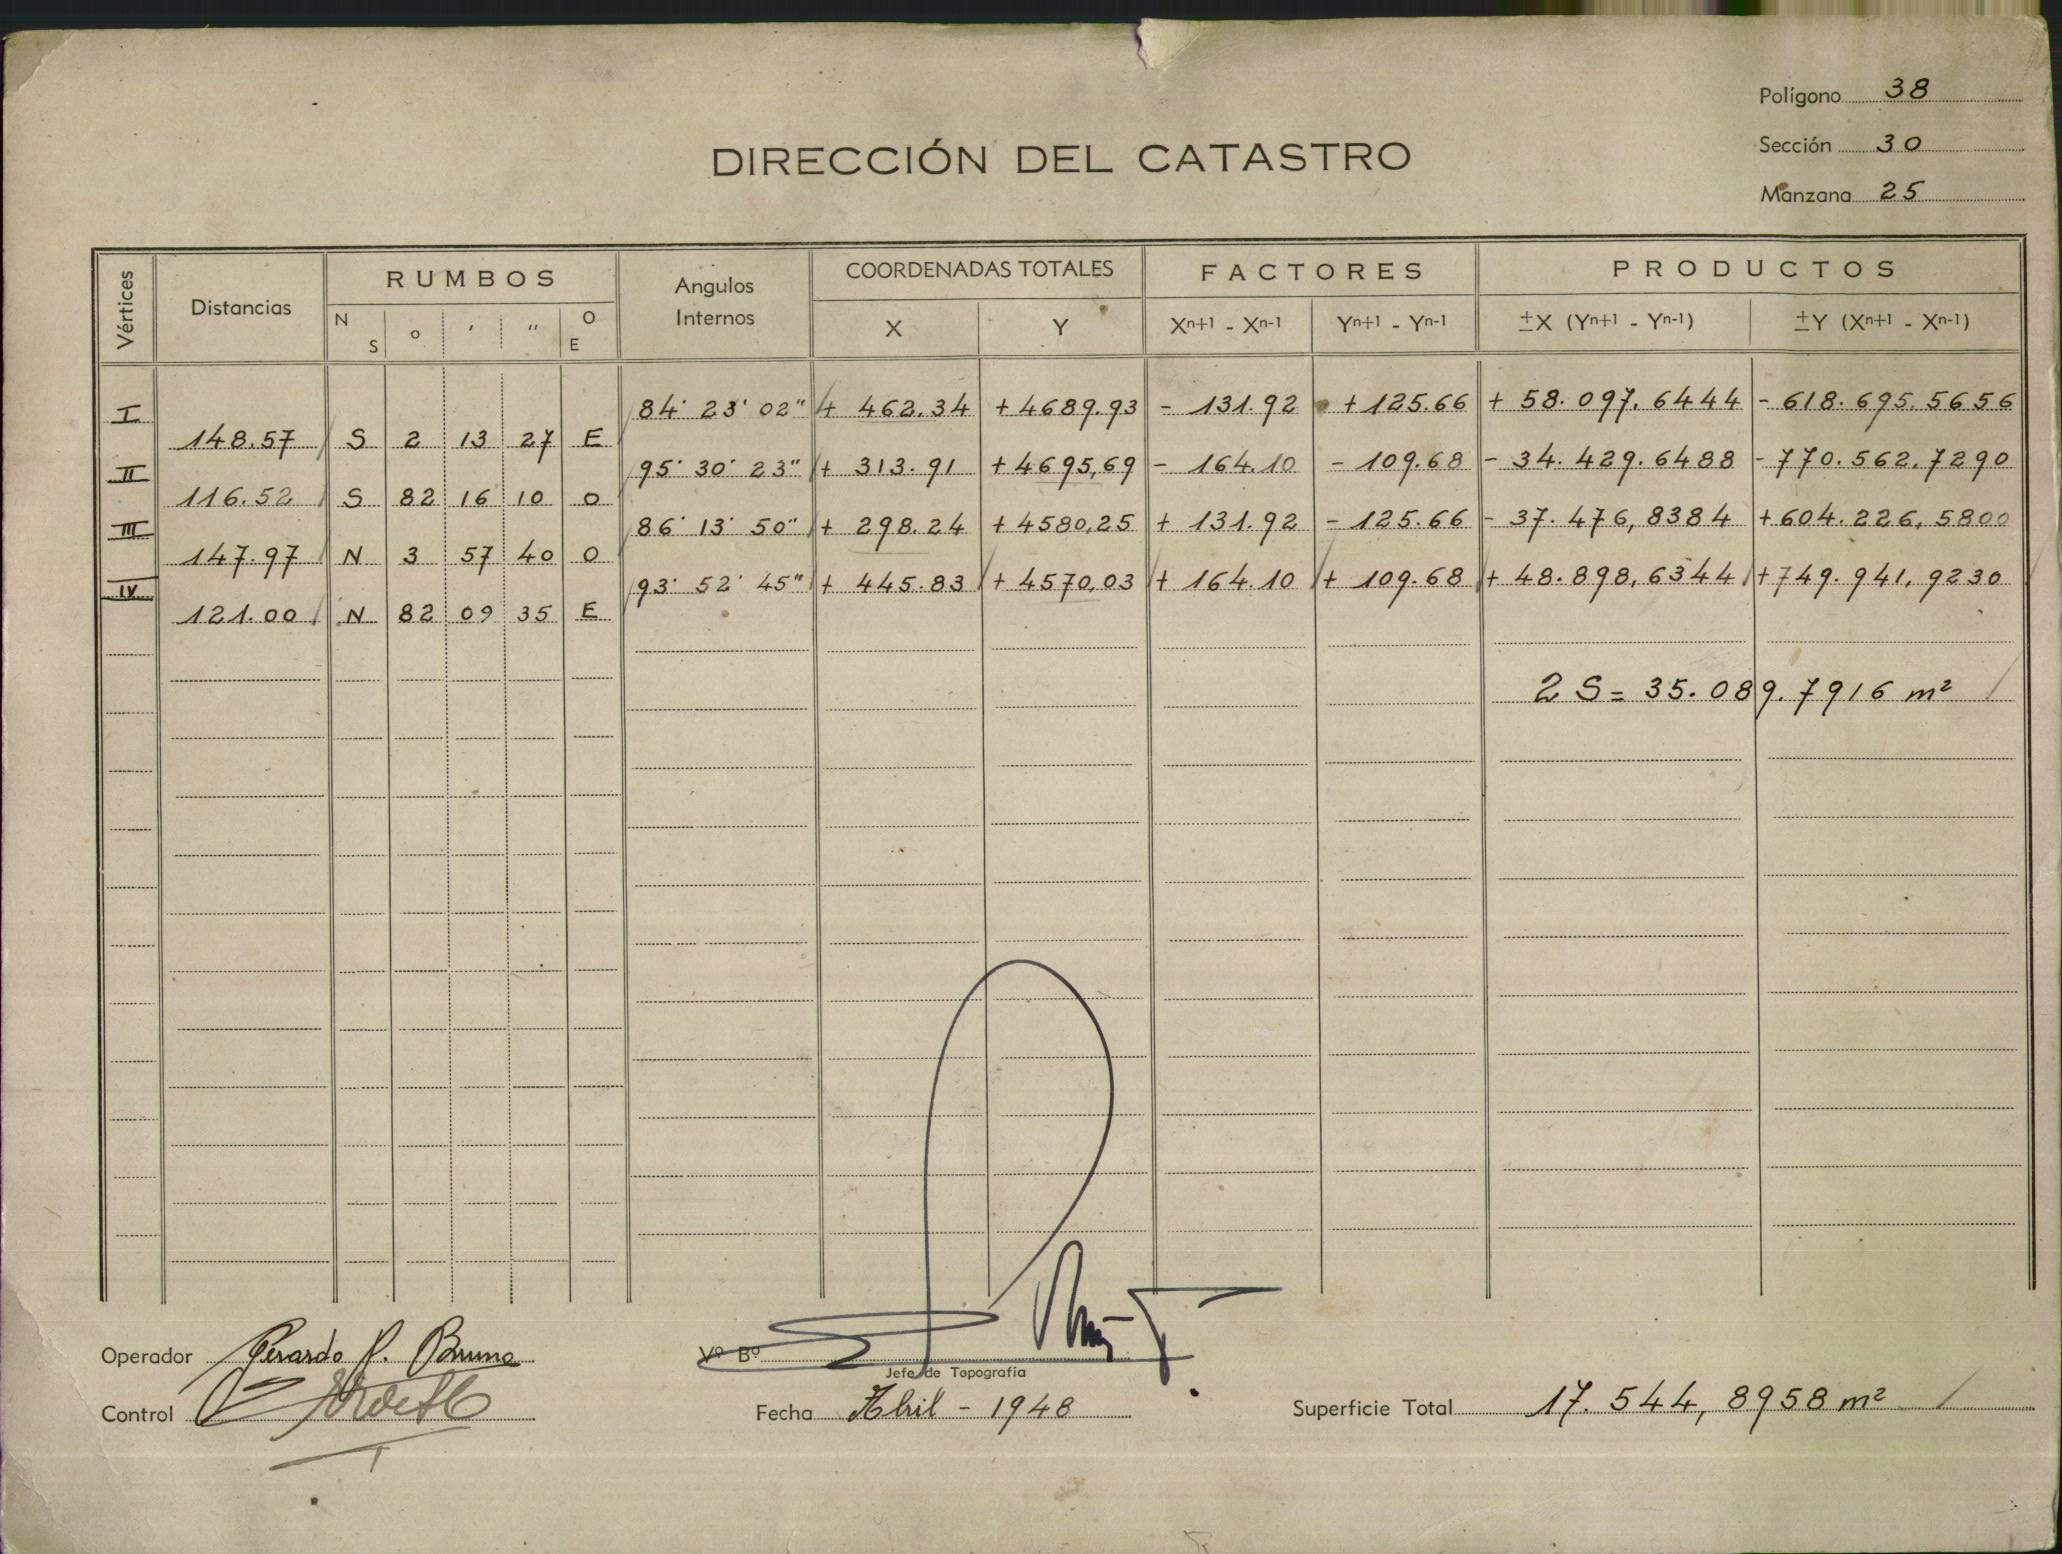 Polígono 38
Sección 30
Manzana 25
DIRECCIÓN DEL CATASTRO
Vértices Distancias RUMBOS Angulos Internos COORDENADAS TOTALES FACTORES PRODUCTOS
N S o ' " O E X Y Xn+1 - Xn-1 Yn+1 - Yn-1 ±X (Yn+1 - Yn-1) ±Y (Xn+1 - Xn-1)
I 84° 23' 02" + 462.34 + 4689.93 - 131.92 + 125.66 + 58.097.6444 - 618.695.5656
148.57 S 2 13 27 E
II 95° 30' 23" + 313.91 + 4695,69 - 164.10 - 109.68 - 34.429.6488 - 770.562.7290
116.52 S 82 16 10 O
III 86° 13' 50" + 298.24 + 4580,25 + 131.92 - 125.66 - 37.476,8384 + 604.226,5800
147.97 N 3 57 40 O
IV 93° 52' 45" + 445.83 + 4570,03 + 164.10 + 109.68 + 48.898,6344 + 749.941,9230
121.00 N 82 09 35 E
2 S = 35.089.7916 m²
Operador Gerardo P. Bruno
Vº Bº
Jefe de Topografía
Control
Fecha Abril - 1948
Superficie Total 17.544,8958 m²